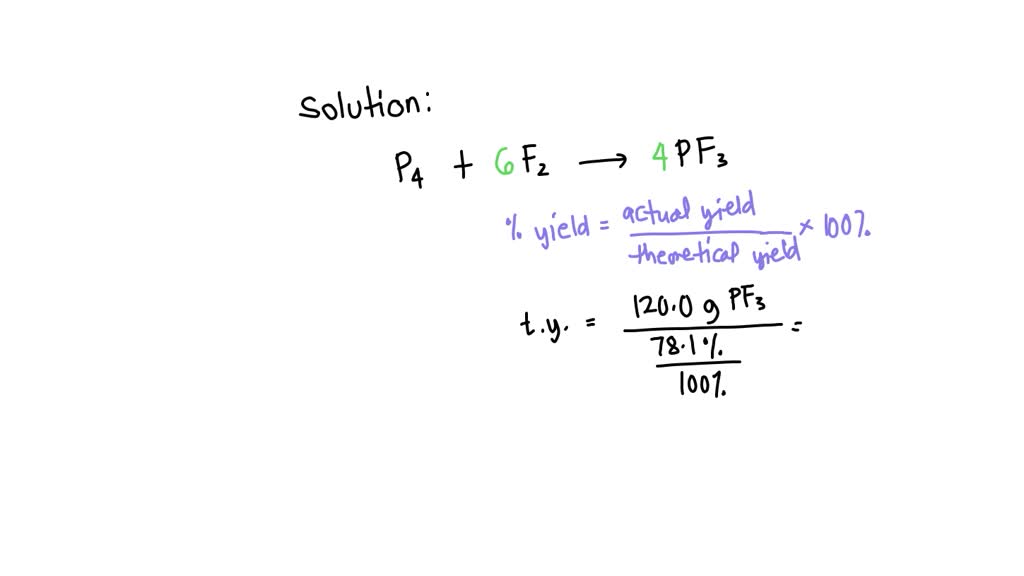 Solution:
P₄ + 6F₂ → 4PF₃
% yield = actual yield / theoretical yield × 100%
t.y. = 120.0 g PF₃ / (78.1% / 100%) =